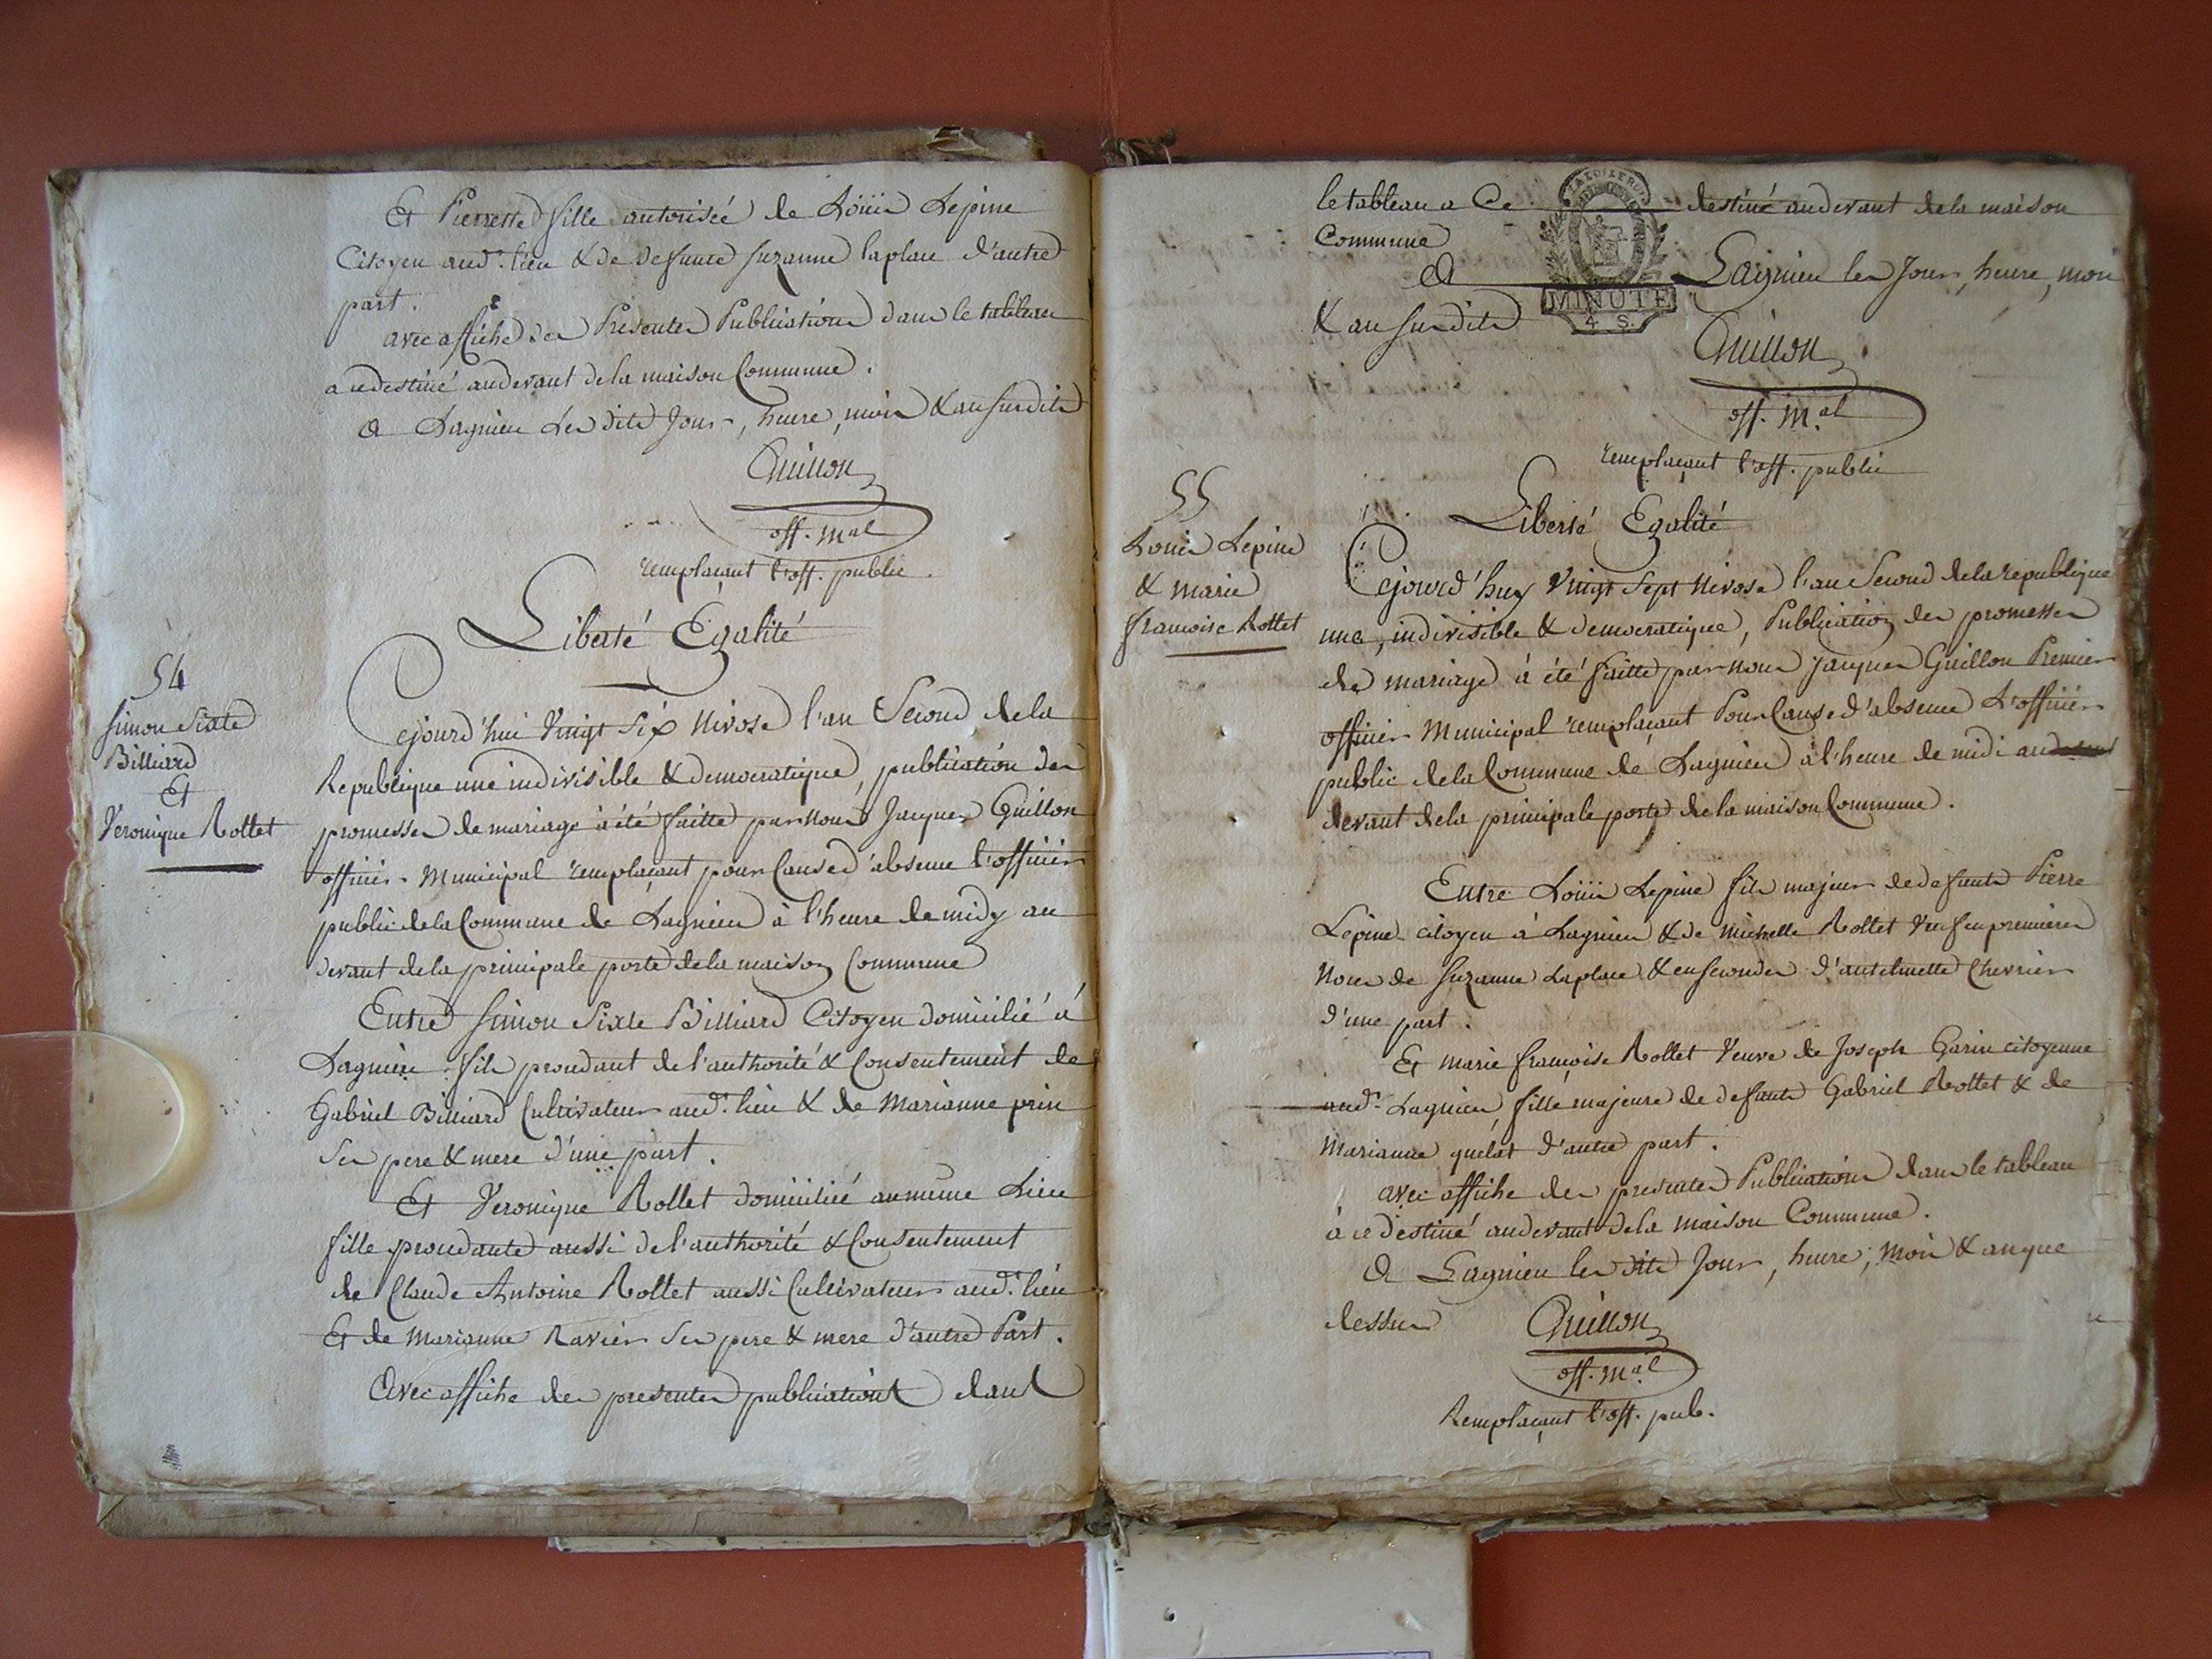 Et Pierrette fille autorisée de Loüis Lepine
Citoyen aud. lieu & de defunte Suzanne laplace d'autre
part.
avec affiche des Presentes Publications dans le tableau
a ce destiné audevant de la maison Commune.
A Lagnieu Les dits Jour, heure, mois & an susdits
Guillon
off. mal
remplaçant l'off. public.
Liberté Egalité
54
Simon Sixte
Billiard
Et
Veronique Rollet
Cejourd'hui Vingt Six Nivose l'an Second de la
Republique une indivisible & democratique, publication des
promesses de mariage à été faitte par nous Jacques Guillon
officier Municipal remplaçant pour Cause d'absence l'officier
public de la Commune de Lagnieu à l'heure de midy au
devant de la principale porte de la maison Commune
Entre Simon Sixte Billiard Citoyen domicilié à
Lagnieu fils procedant de l'authorité & Consentement de
Gabriel Billiard Cultivateur aud. lieu & de Marianne prin
Ses pere & mere d'une part.
Et Veronique Rollet domiciliée au même Lieu
fille procedante aussi de l'authorité & Consentement
de Claude Antoine Rollet aussi Cultivateur aud. lieu
Et de Marianne Ravier Ses pere & mere d'autre Part.
Avec affiche des presentes publications dans
le tableau a Ce destiné audevant de la maison
Commune
A Lagnieu les Jour, heure, mois
& an susdits
MINUTE
4 S.
Guillon
off. M.al
remplaçant l'off. public
55
Louis Lepine
& marie
françoise Rollet
Liberté Egalité
Cejourd'huy Vingt Sept Nivose l'an Second de la republique
une, indivisible & democratique, Publication des promesses
de mariage à été faitte par nous Jacques Guillon Premier
officier Municipal remplaçant Pour Cause d'absence L'officier
public de la Commune de Lagnieu à l'heure de midi au
devant de la principale porte de la maison Commune.
Entre Loüis Lepine fils majeur de defunts Pierre
Lepine citoyen à Lagnieu & de Michelle Rollet Veuf en premieres
Noces de Suzanne Laplace & en secondes d'anthelmette Chevrier
d'une part.
Et marie françoise Rollet Veuve de Joseph Garin citoyenne
aud. Lagnieu, fille majeure de defunts Gabriel Rollet & de
Marianne quélat d'autre part.
avec affiche des presentes Publications dans le tableau
à ce destiné audevant de la maison Commune.
A Lagnieu les dits Jour, heure, mois & an que
dessus
Guillon
off. m.al
Remplaçant l'off. pub.